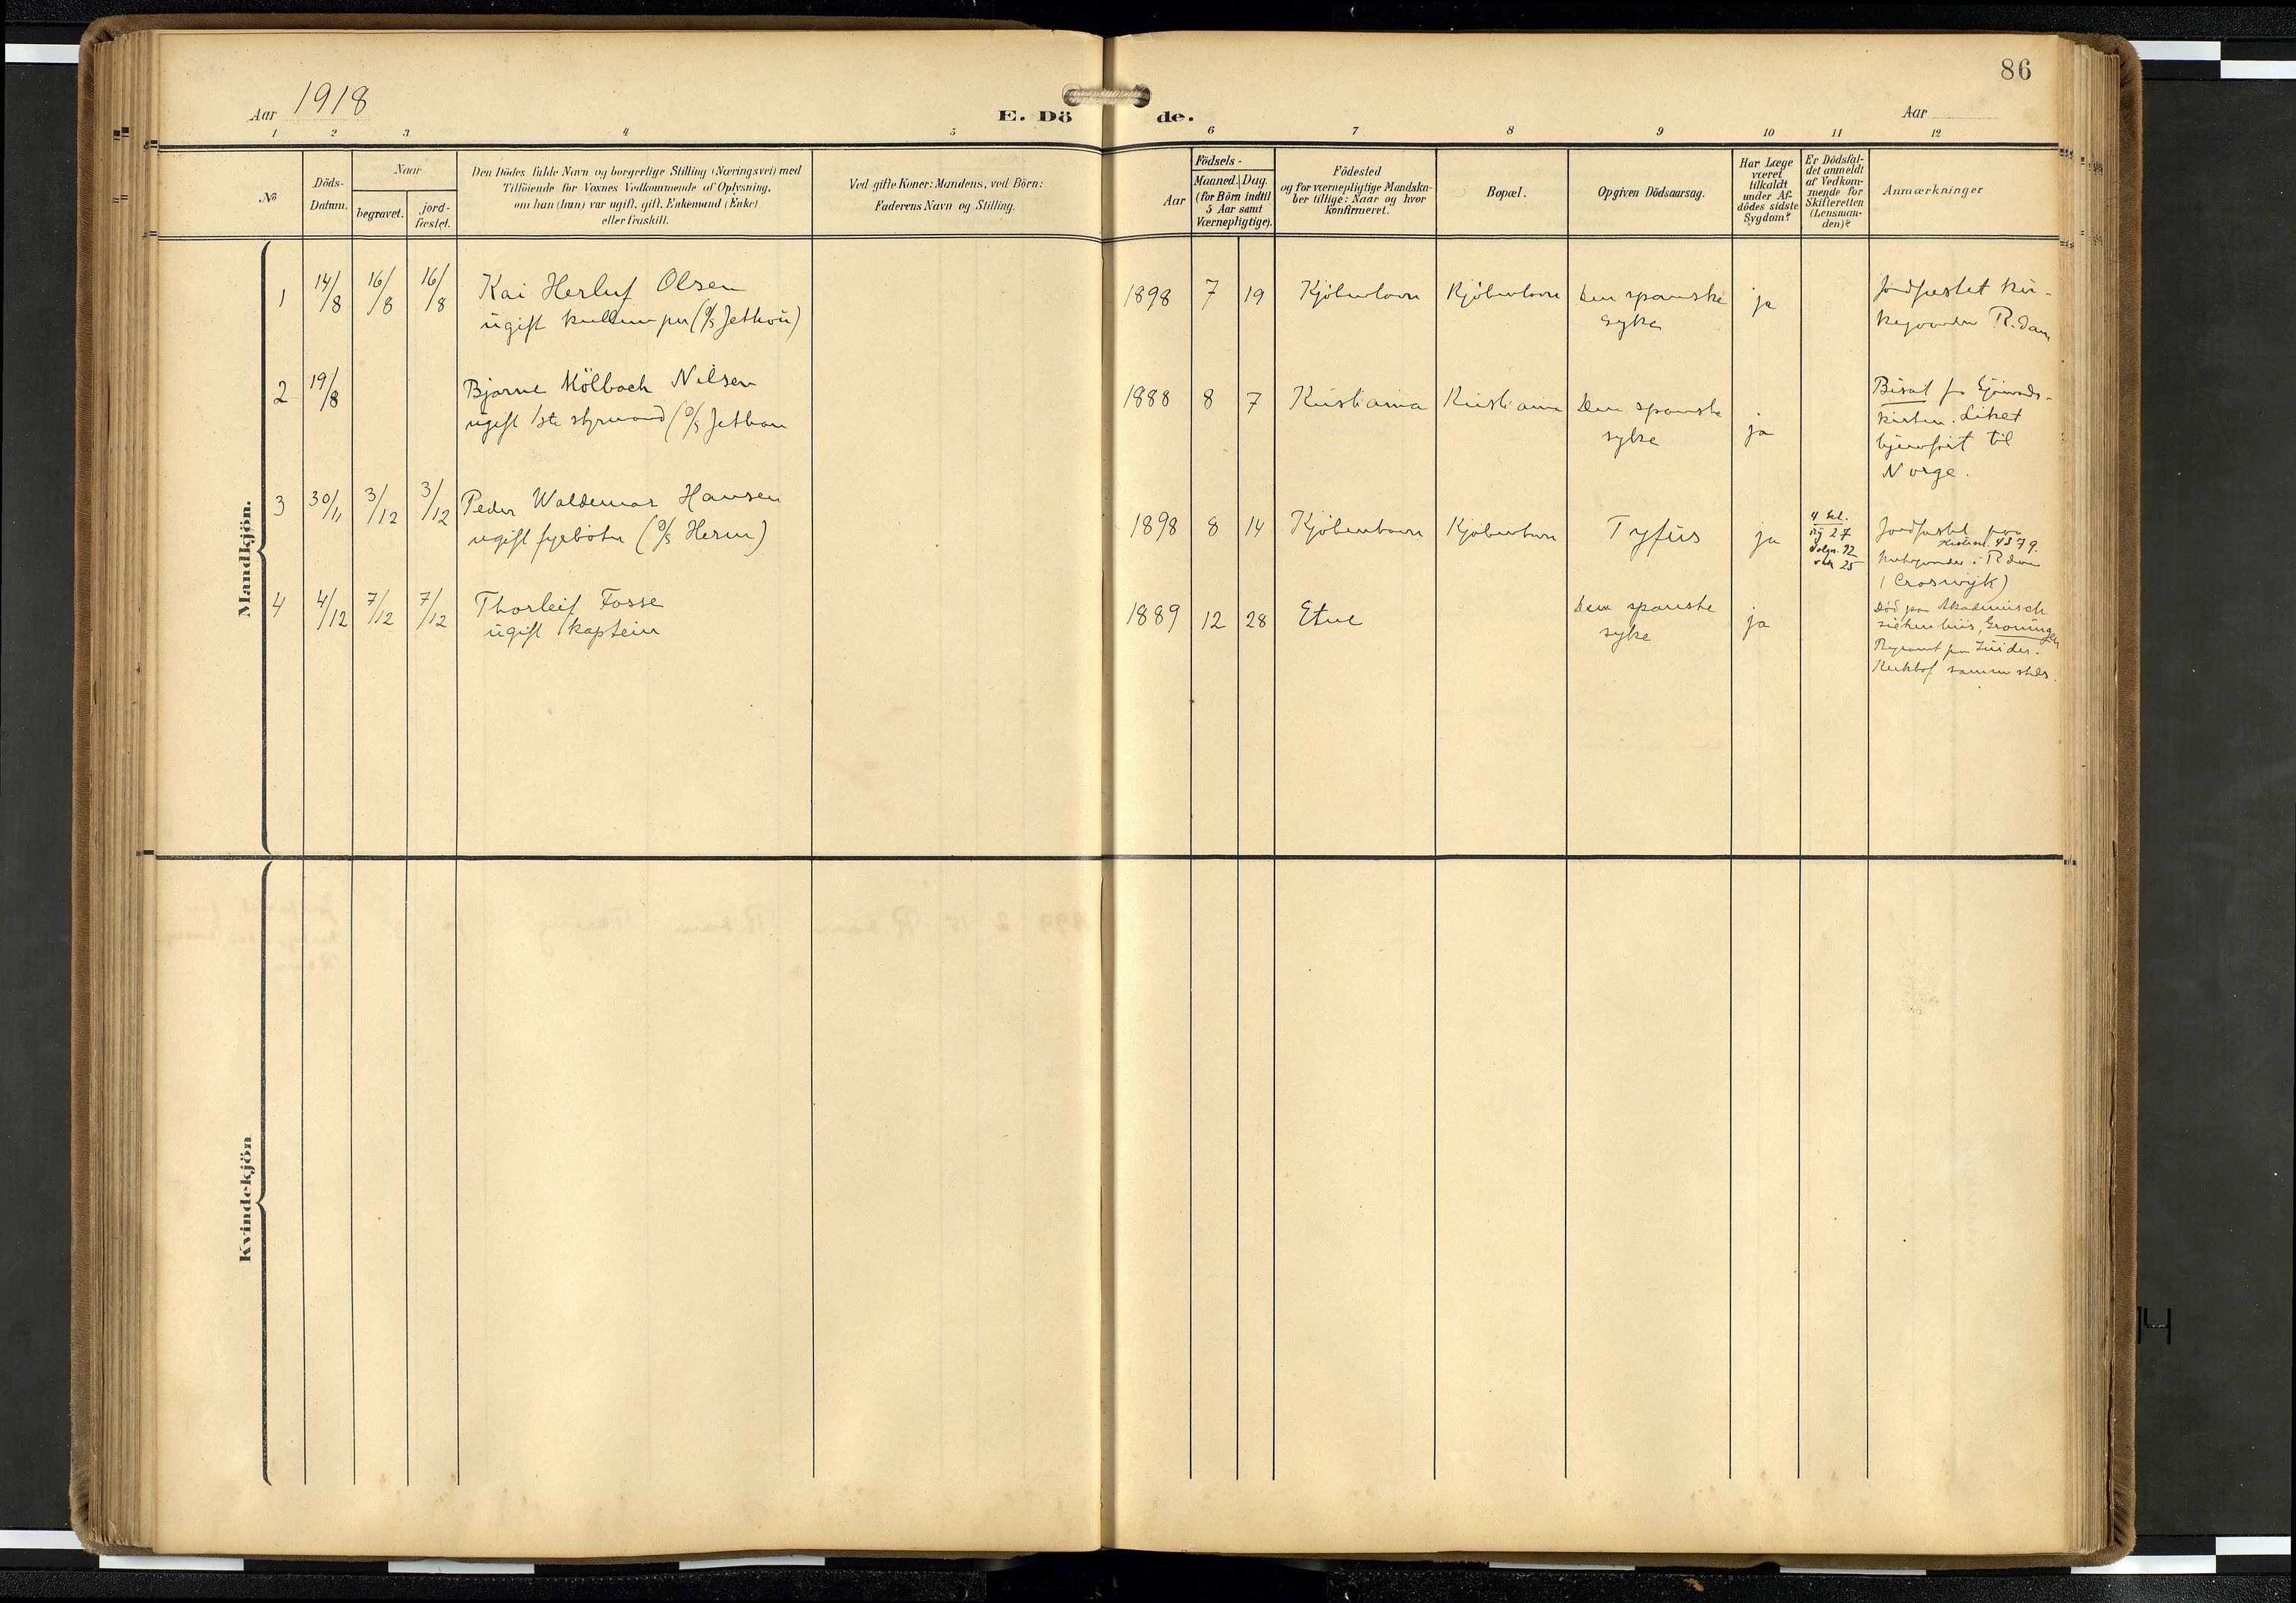 86
Aar 1918
E. Dö de.
Aar
1 2 3 4 5 6 7 8 9 10 11 12
No
Döds-
Datum.
Naar
begravet.
jord-
fæstet.
Den Dödes fulde Navn og borgerlige Stilling (Næringsvei) med
Tilföiende for Voxnes Vedkommende af Oplysning,
om han (hun) var ugift, gift, Enkemand (Enke)
eller fraskilt.
Ved gifte Koner: Mandens, ved Börn:
Faderens Navn og Stilling.
Aar
Födsels-
Maaned. Dag.
(for Börn indtil
5 Aar samt
Værnepligtige).
Födested
og for værnepligtige Mandska-
ber tillige: Naar og hvor
konfirmeret.
Bopæl.
Opgiven Dödsaarsag.
Har Læge
været
tilkaldt
under Af-
dödes sidste
Sygdom?
Er Dödsfal-
det anmeldt
af Vedkom-
mende for
Skifteretten
(Lensman-
den)?
Anmærkninger
Mandkjön.
1 14/8 16/8 16/8 Kai Herluf Olsen
ugift kullemper (D/S Jethou)
1898 7 19 Kjöbenhavn Kjöbenhavn Den spanske
syke
ja
Jordfæstet kir-
kegaarden R.dam
2 19/8 Bjarne Mölbach Nilsen
ugift 1ste styrmand (D/S Jethou
1888 8 7 Kristiania Kristiania Den spanske
syke
ja
Bisat fra Sjömands-
kirken. Liket
hjemfört til
Norge.
3 30/11 3/12 3/12 Peder Waldemar Hansen
ugift fyrböter (D/S Herm)
1898 8 14 Kjöbenhavn Kjöbenhavn Tyfus ja
4 kl.
rij 27
volgn. 92
vak 25
Jordfæstet paa
4879.
kirkegaarden i R.dam
(Croswijk)
4 4/12 7/12 7/12 Thorleif Fosse
ugift kaptein
1889 12 28 Etne
Den spanske
syke
ja
Död paa Akademisch
ziekenhuis, Groningen
Begravet paa Zuider-
Kerkhof sammesteds.
Kvindekjön